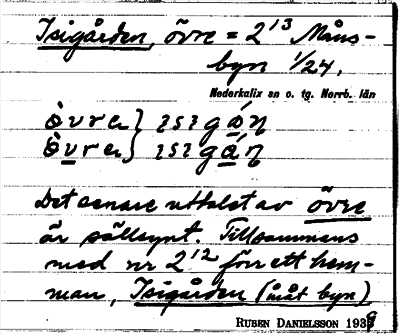 Isigården, övre = 2¹³ Måns-
byn 1/24.
Nederkalix sn o. tg. Norrb. län
òvrer} ısıgán
òvrer} ısıgán
Det senare uttalet av övre
är sällsynt. Tillsammans
med nr 2¹² förr ett hem-
man, Isigården (måt byn)
RUBEN DANIELSSON 1939